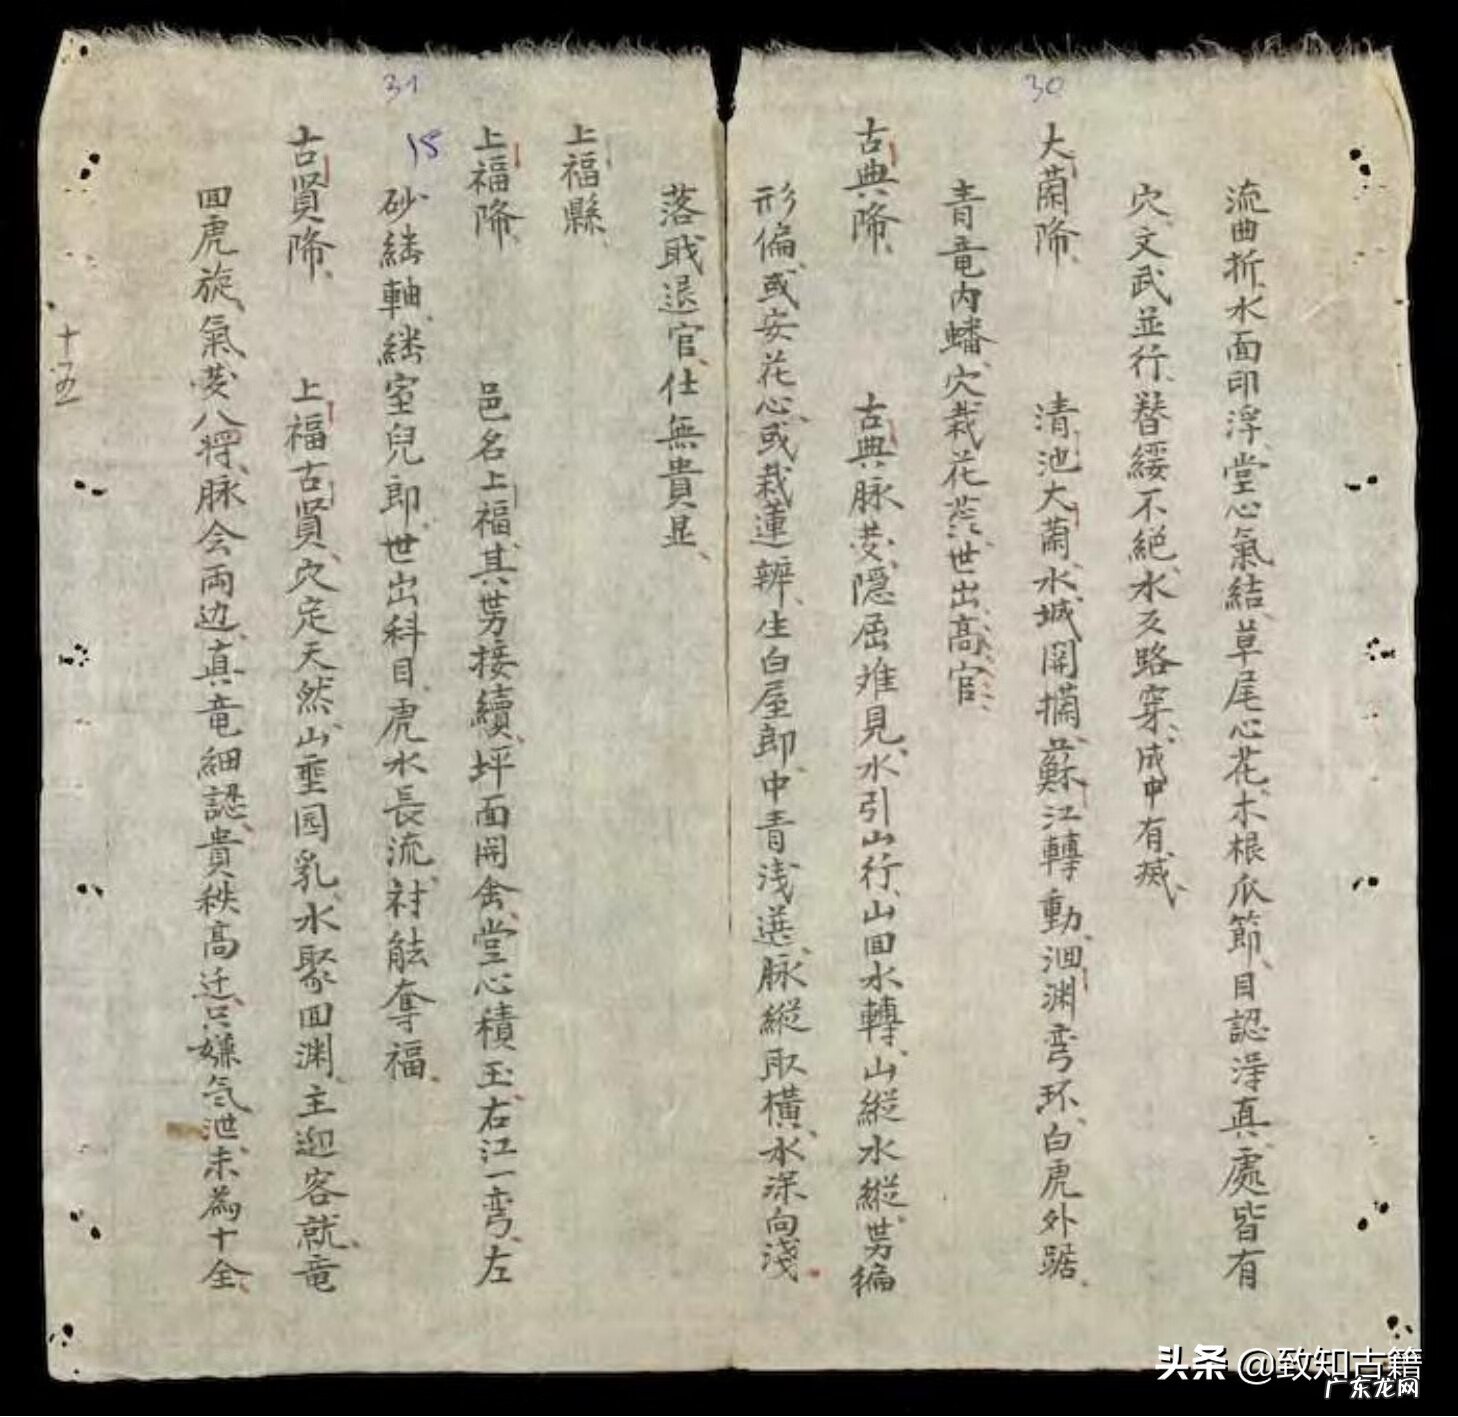 30
流曲折水面印浮堂心氣結草尾心花木根爪節目認淂真處皆有
穴文武並行替綏不絕水又路穿成中有减
大蘭 清池大蘭水城開攔蘇江轉動洄渊弯环白虎外踞
青竜内蟠穴栽花蕊世出高官
古典 古典脉发隱屈难見水引山行山回水轉山縱水縱势徧
形偏或安花心或栽蓮辨生白屋郎中青浅选脉縱取橫水深向淺
落戝退官仕無貴显
31
上福縣
上福 邑名上福其势接續坪面開禽堂心積玉右江一弯左
15
砂繞軸繞室兒郎世出科目虎水長流封舷奪福
古賢 上福古賢穴定天然山垂园乳水聚回渊主迎客就竜
回虎旋氣发八将脉会両边真竜細認貴秩高迁只嫌気泄未為十全
十五
头条 @致知古籍
广东龙网